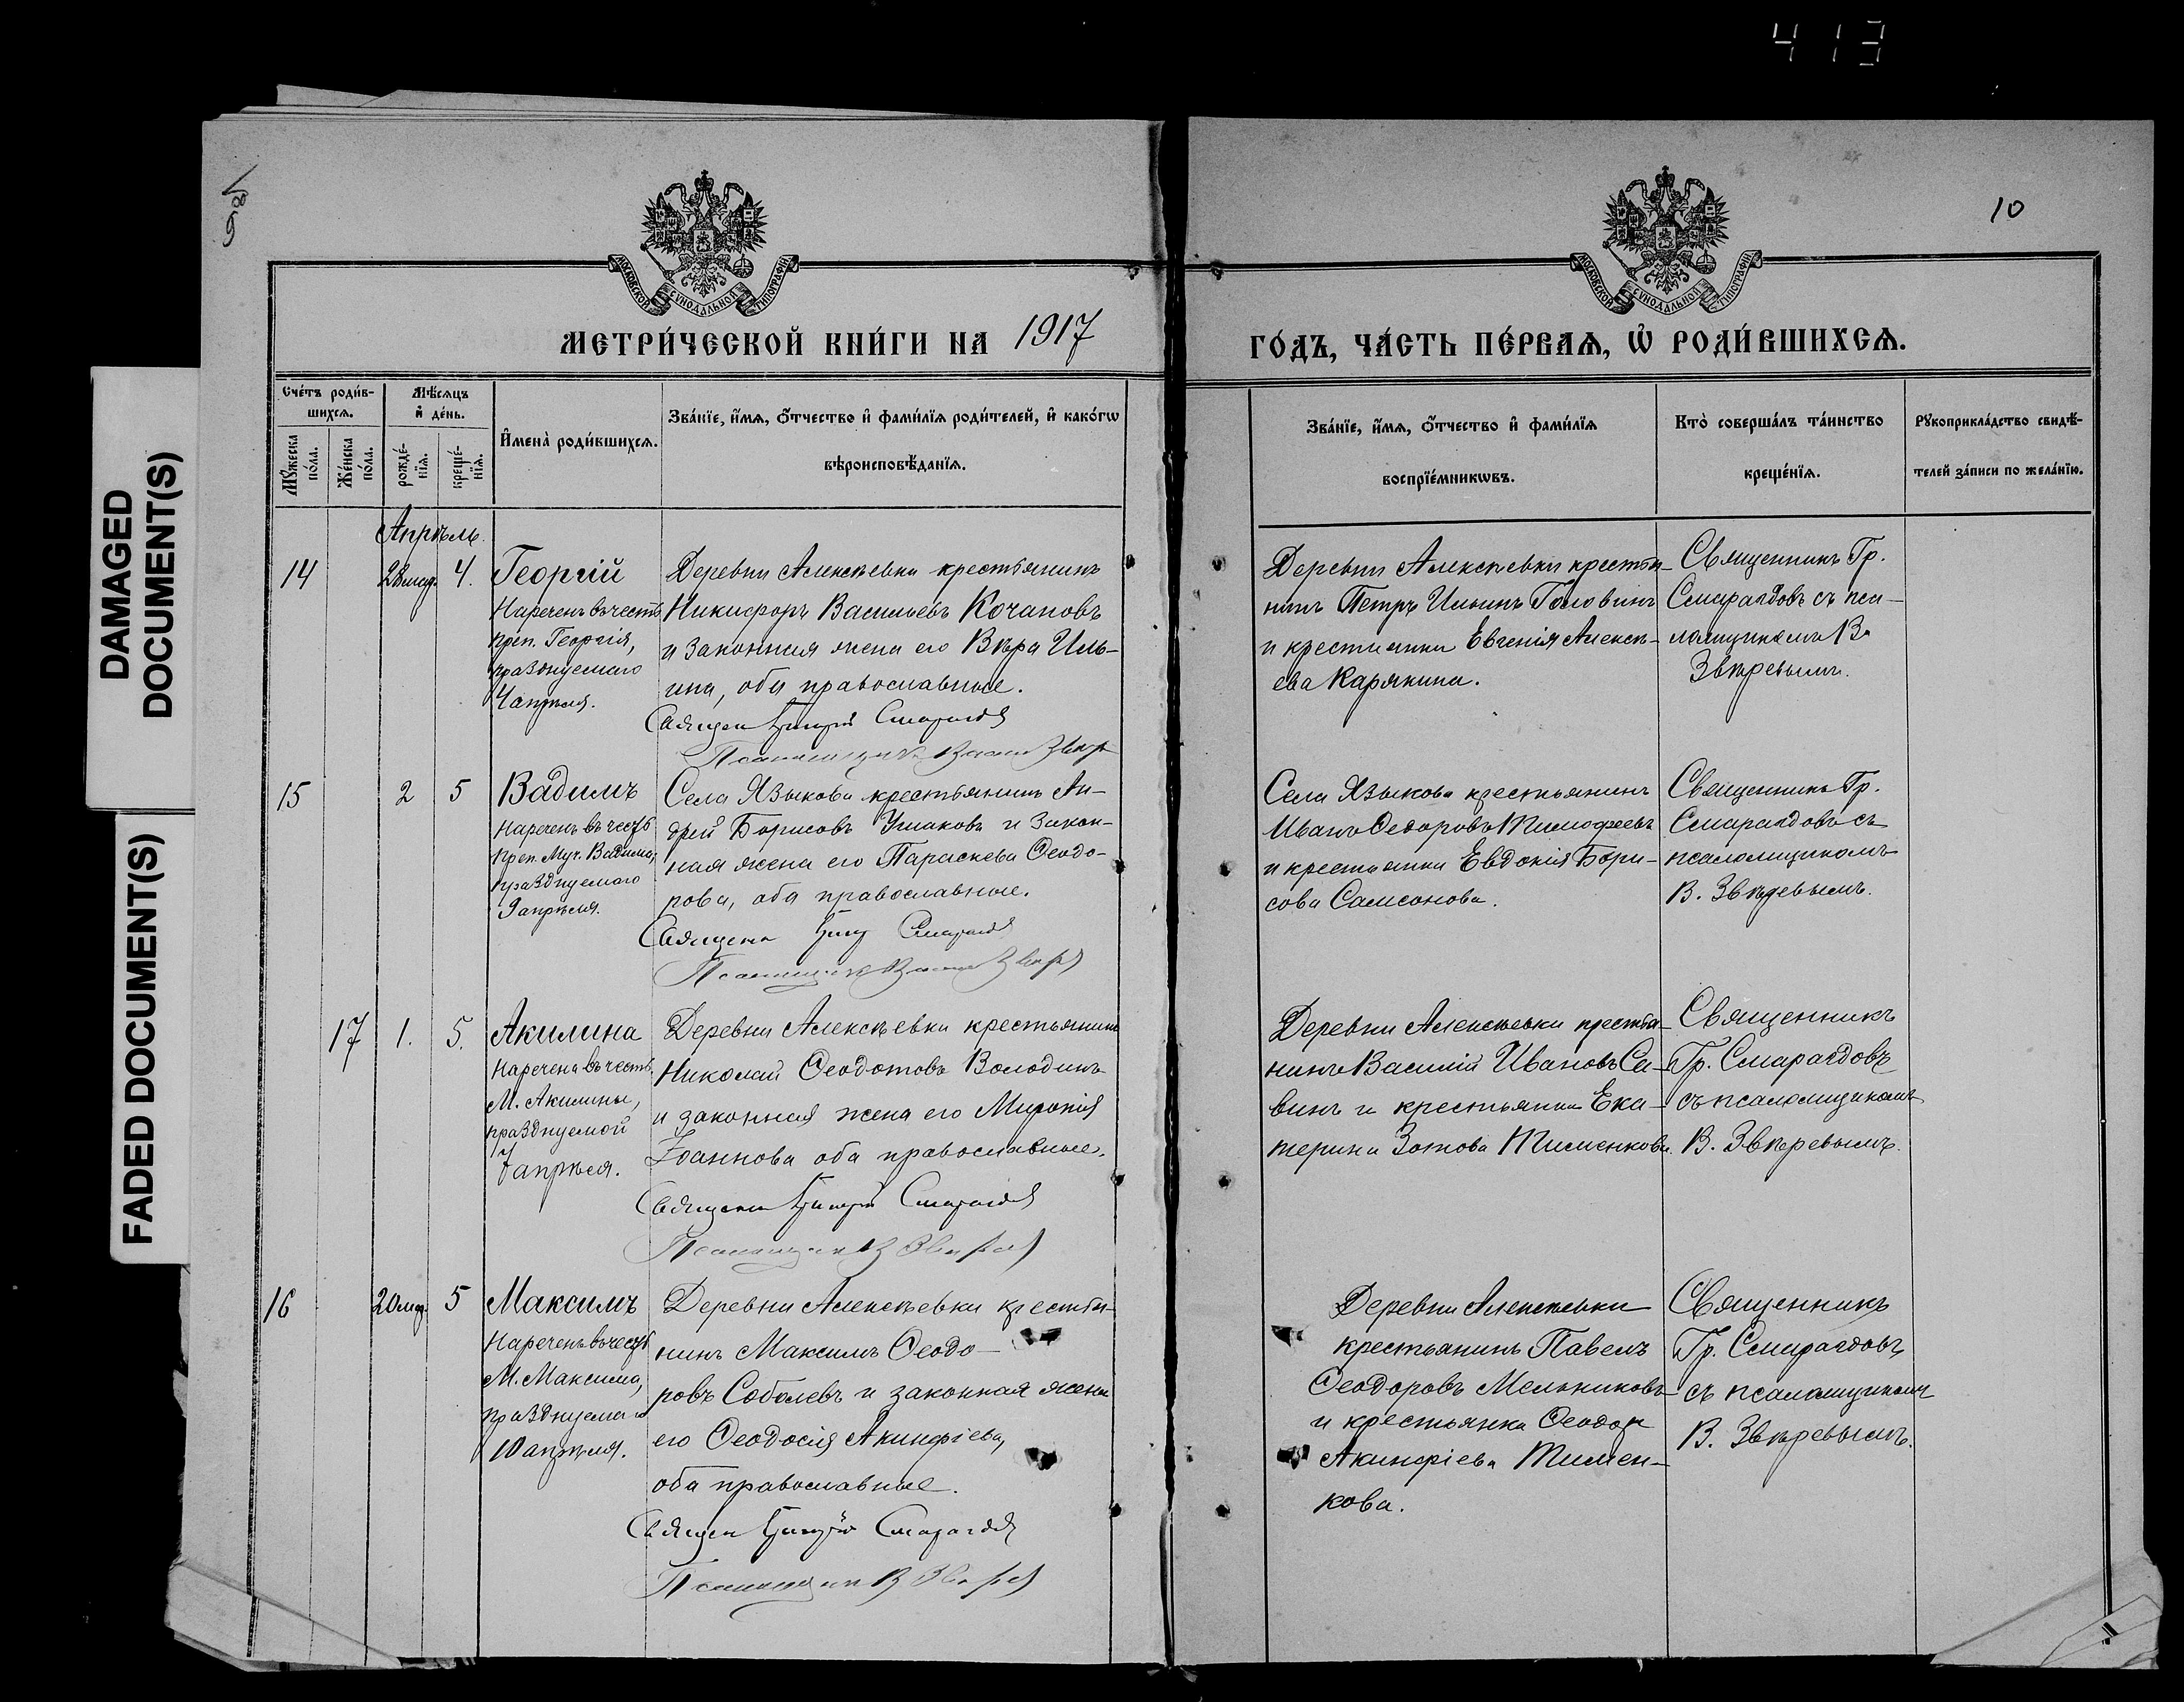 413
DAMAGED
DOCUMENT(S)
FADED DOCUMENT(S)
10
МОСКОВСКОЙ СѴНОДАЛЬНОЙ ТИПОГРАФІИ
МОСКОВСКОЙ СѴНОДАЛЬНОЙ ТИПОГРАФІИ
МЕТРИ́ЧЕСКОЙ КНИ́ГИ НА 1917
ГО́ДЪ, ЧА́СТЬ ПЕ́РВАѦ, Ѡ҆ РОДИ́ВШИХСѦ.
Сче́тъ роди́в-
шихсѧ.
Мѣ́сѧцъ
и҆ де́нь.
Мꙋ́жеска
по́ла.
Же́нска
по́ла.
рожде́-
нїѧ.
креще́-
нїѧ.
И҆мена̀ роди́вшихсѧ.
Зва́нїе, и҆́мѧ, ѻ҆́тчество и҆ фами́лїѧ роди́телей, и҆ како́гѡ
вѣроисповѣ́данїѧ.
Зва́нїе, и҆́мѧ, ѻ҆́тчество и҆ фами́лїѧ
воспрїе́мникѡвъ.
Кто̀ соверша́лъ та́инство
креще́нїѧ.
Рꙋкоприкла́дство свидѣ́-
телей за́писи по жела́нїю.
Апрѣль.
14
4.
Георгій
Нареченъ въ честь
преп. Георгія,
празднуемаго
4 апрѣля.
Деревни Алексѣевки крестьянинъ
Никифоръ Васильевъ Кочановъ
и законная жена его Вѣра Иль-
ина, оба православные.
Священ Григорій Смарагдов
Псаломщикъ Звѣр
Деревни Алексѣевки крестья-
нинъ Петръ Ильинъ Головинъ
и крестьянка Евгенія Алексѣ-
ева Карякина.
Священникъ Гр.
Смарагдовъ съ пса-
ломщикомъ В.
Звѣревымъ.
15
2
5
Вадимъ
Нареченъ въ честь
преп. Муч. Вадима,
празднуемаго
9 апрѣля.
Села Языкова крестьянинъ Ан-
дрей Борисовъ Ушаковъ и закон-
ная жена его Параскева Ѳеодо-
рова, оба православные.
Священ Григ Смарагдов
Псаломщикъ Звѣр
Села Языкова крестьянинъ
Иванъ Ѳедоровъ Тимофеевъ
и крестьянка Евдокія Бори-
сова Самсонова.
Священникъ Гр.
Смарагдовъ съ
псаломщикомъ
В. Звѣревымъ.
17
1.
5.
Акилина
Наречена въ честь
М. Акилины,
празднуемой
7 апрѣля.
Деревни Алексѣевки крестьянинъ
Николай Ѳеодотовъ Володинъ
и законная жена его Миропія
Іоаннова оба православные.
Священ Григорій Смарагдов
Псаломщикъ В Звѣрев
Деревни Алексѣевки крестья-
нинъ Василій Ивановъ Са-
винъ и крестьянка Ека-
терина Зотова Тименкова.
Священникъ
Гр. Смарагдовъ
съ псаломщикомъ
В. Звѣревымъ.
16
20 мар.
5
Максимъ
Нареченъ въ честь
М. Максима,
празднуемаго
10 апрѣля.
Деревни Алексѣевки крестья-
нинъ Максимъ Ѳеодо-
ровъ Соболевъ и законная жена
его Ѳеодосія Акинфіева,
оба православные.
Священ Григорій Смарагдов
Псаломщикъ В Звѣрев
Деревни Алексѣевки
крестьянинъ Павелъ
Ѳеодоровъ Мельниковъ
и крестьянка Ѳеодора
Акинфіева Тимен-
кова.
Священникъ
Гр. Смарагдовъ
съ псаломщикомъ
В. Звѣревымъ.